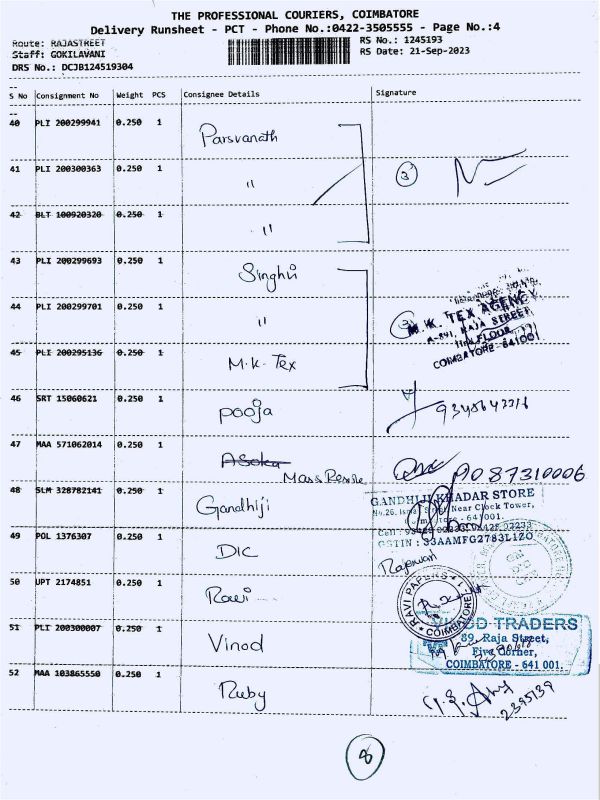 THE PROFESSIONAL COURIERS, COIMBATORE
Delivery Runsheet - PCT - Phone No.:0422-3505555 - Page No.:4
Route: RAJASTREET
RS No.: 1245193
Staff: GOKILAVANI
RS Date: 21-Sep-2023
DRS No.: DCJB124519304
S No Consignment No Weight PCS Consignee Details Signature
40 PLI 200299941 0.250 1 Parsvanath
41 PLI 200300363 0.250 1 "
3
42 BLT 100920320 0.250 1 "
43 PLI 200299693 0.250 1 Singhvi
44 PLI 200299701 0.250 1 "
3
M.K. TEX AGENCY
RAJA STREET
FLOOR
COIMBATORE - 641001
45 PLI 200295136 0.250 1 M.K. Tex
46 SRT 15060621 0.250 1 pooja
47 MAA 571062014 0.250 1 Asoka
Mass Reside
9087310006
48 SLM 328782141 0.250 1 Gandhiji
GANDHIJI KHADAR STORE
Near Clock Tower,
641001.
GSTIN : 33AAMFG2783L1ZO
49 POL 1376307 0.250 1 DIC
50 UPT 2174851 0.250 1 Ravi
RAVI PAPERS
COIMBATORE
51 PLI 200300007 0.250 1 Vinod
TRADERS
89, Raja Street,
Five Corner,
COIMBATORE - 641 001.
52 MAA 103865550 0.250 1 Ruby
2395139
8